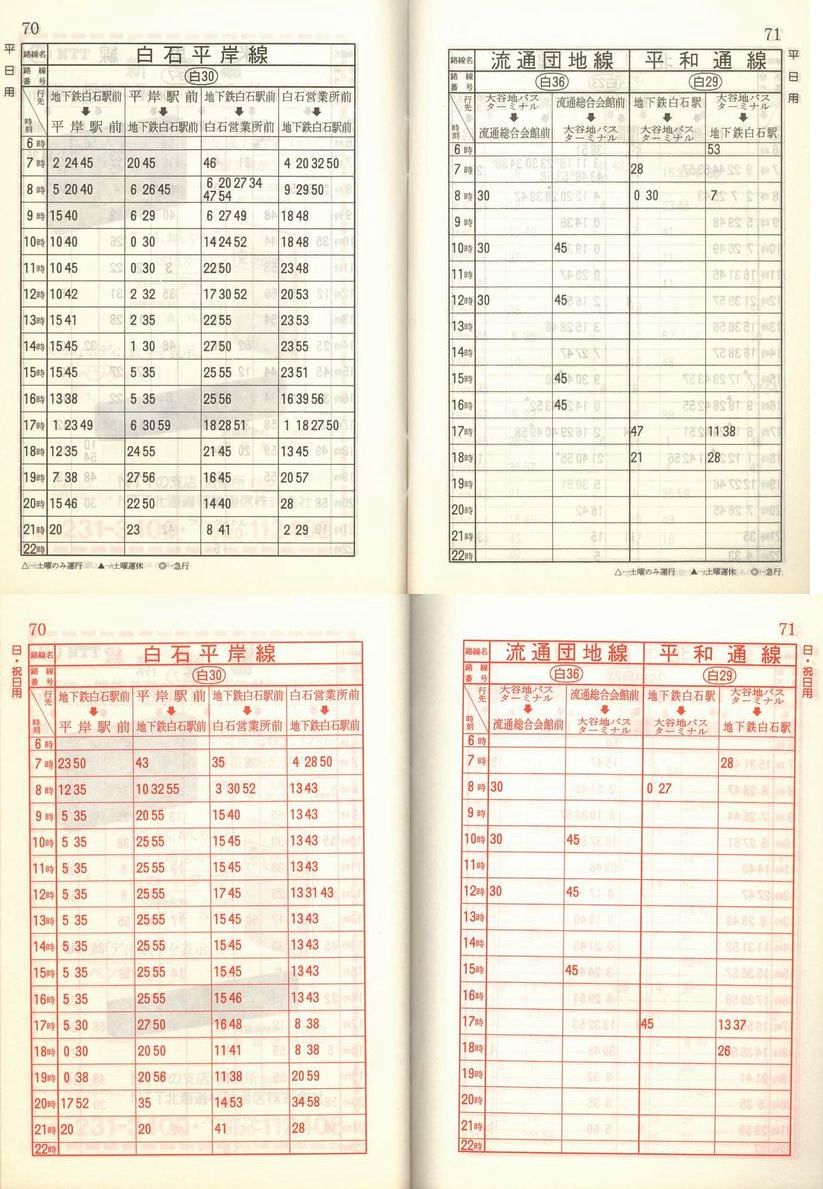 70
平日用
路線名 白石平岸線
路線番号 白30
行先 時刻 地下鉄白石駅前➡平岸駅前 平岸駅前➡地下鉄白石駅前 地下鉄白石駅前➡白石営業所前 白石営業所前➡地下鉄白石駅前
6時
7時 2 24 45 20 45 46 4 20 32 50
8時 5 20 40 6 26 45 6 20 27 34 47 54 9 29 50
9時 15 40 6 29 6 27 49 18 48
10時 10 40 0 30 14 24 52 18 48
11時 10 45 0 30 22 50 23 48
12時 10 42 2 32 17 30 52 20 53
13時 15 41 2 35 22 55 23 53
14時 15 45 1 30 27 50 23 55
15時 15 45 5 35 25 55 23 51
16時 13 38 5 35 25 56 16 39 56
17時 1 23 49 6 30 59 18 28 51 1 18 27 50
18時 12 35 24 55 21 45 13 45
19時 7 38 27 56 16 45 20 57
20時 15 46 22 50 14 40 28
21時 20 23 8 41 2 29
22時
△…土曜のみ運行 ▲…土曜運休 ◎…急行
71
平日用
路線名 流通団地線 平和通線
路線番号 白36 白29
行先 時刻 大谷地バスターミナル➡流通総合会館前 流通総合会館前➡大谷地バスターミナル 地下鉄白石駅➡大谷地バスターミナル 大谷地バスターミナル➡地下鉄白石駅
6時 53
7時 28
8時 30 0 30 7
9時
10時 30 45
11時
12時 30 45
13時
14時
15時 45
16時 45
17時 47 11 38
18時 21 28
19時
20時
21時
22時
△…土曜のみ運行 ▲…土曜運休 ◎…急行
70
日・祝日用
路線名 白石平岸線
路線番号 白30
行先 時刻 地下鉄白石駅前➡平岸駅前 平岸駅前➡地下鉄白石駅前 地下鉄白石駅前➡白石営業所前 白石営業所前➡地下鉄白石駅前
6時
7時 23 50 43 35 4 28 50
8時 12 35 10 32 55 3 30 52 13 43
9時 5 35 20 55 15 40 13 43
10時 5 35 25 55 15 45 13 43
11時 5 35 25 55 15 45 13 43
12時 5 35 25 55 17 45 13 31 43
13時 5 35 25 55 15 45 13 43
14時 5 35 25 55 15 45 13 43
15時 5 35 25 55 15 45 13 43
16時 5 35 25 55 15 46 13 43
17時 5 30 27 50 16 48 8 38
18時 0 30 20 50 11 41 8 38
19時 0 38 20 56 11 38 20 59
20時 17 52 35 14 53 34 58
21時 20 20 41 28
22時
71
日・祝日用
路線名 流通団地線 平和通線
路線番号 白36 白29
行先 時刻 大谷地バスターミナル➡流通総合会館前 流通総合会館前➡大谷地バスターミナル 地下鉄白石駅➡大谷地バスターミナル 大谷地バスターミナル➡地下鉄白石駅
6時
7時 28
8時 30 0 27
9時
10時 30 45
11時
12時 30 45
13時
14時
15時 45
16時
17時 45 13 37
18時 26
19時
20時
21時
22時